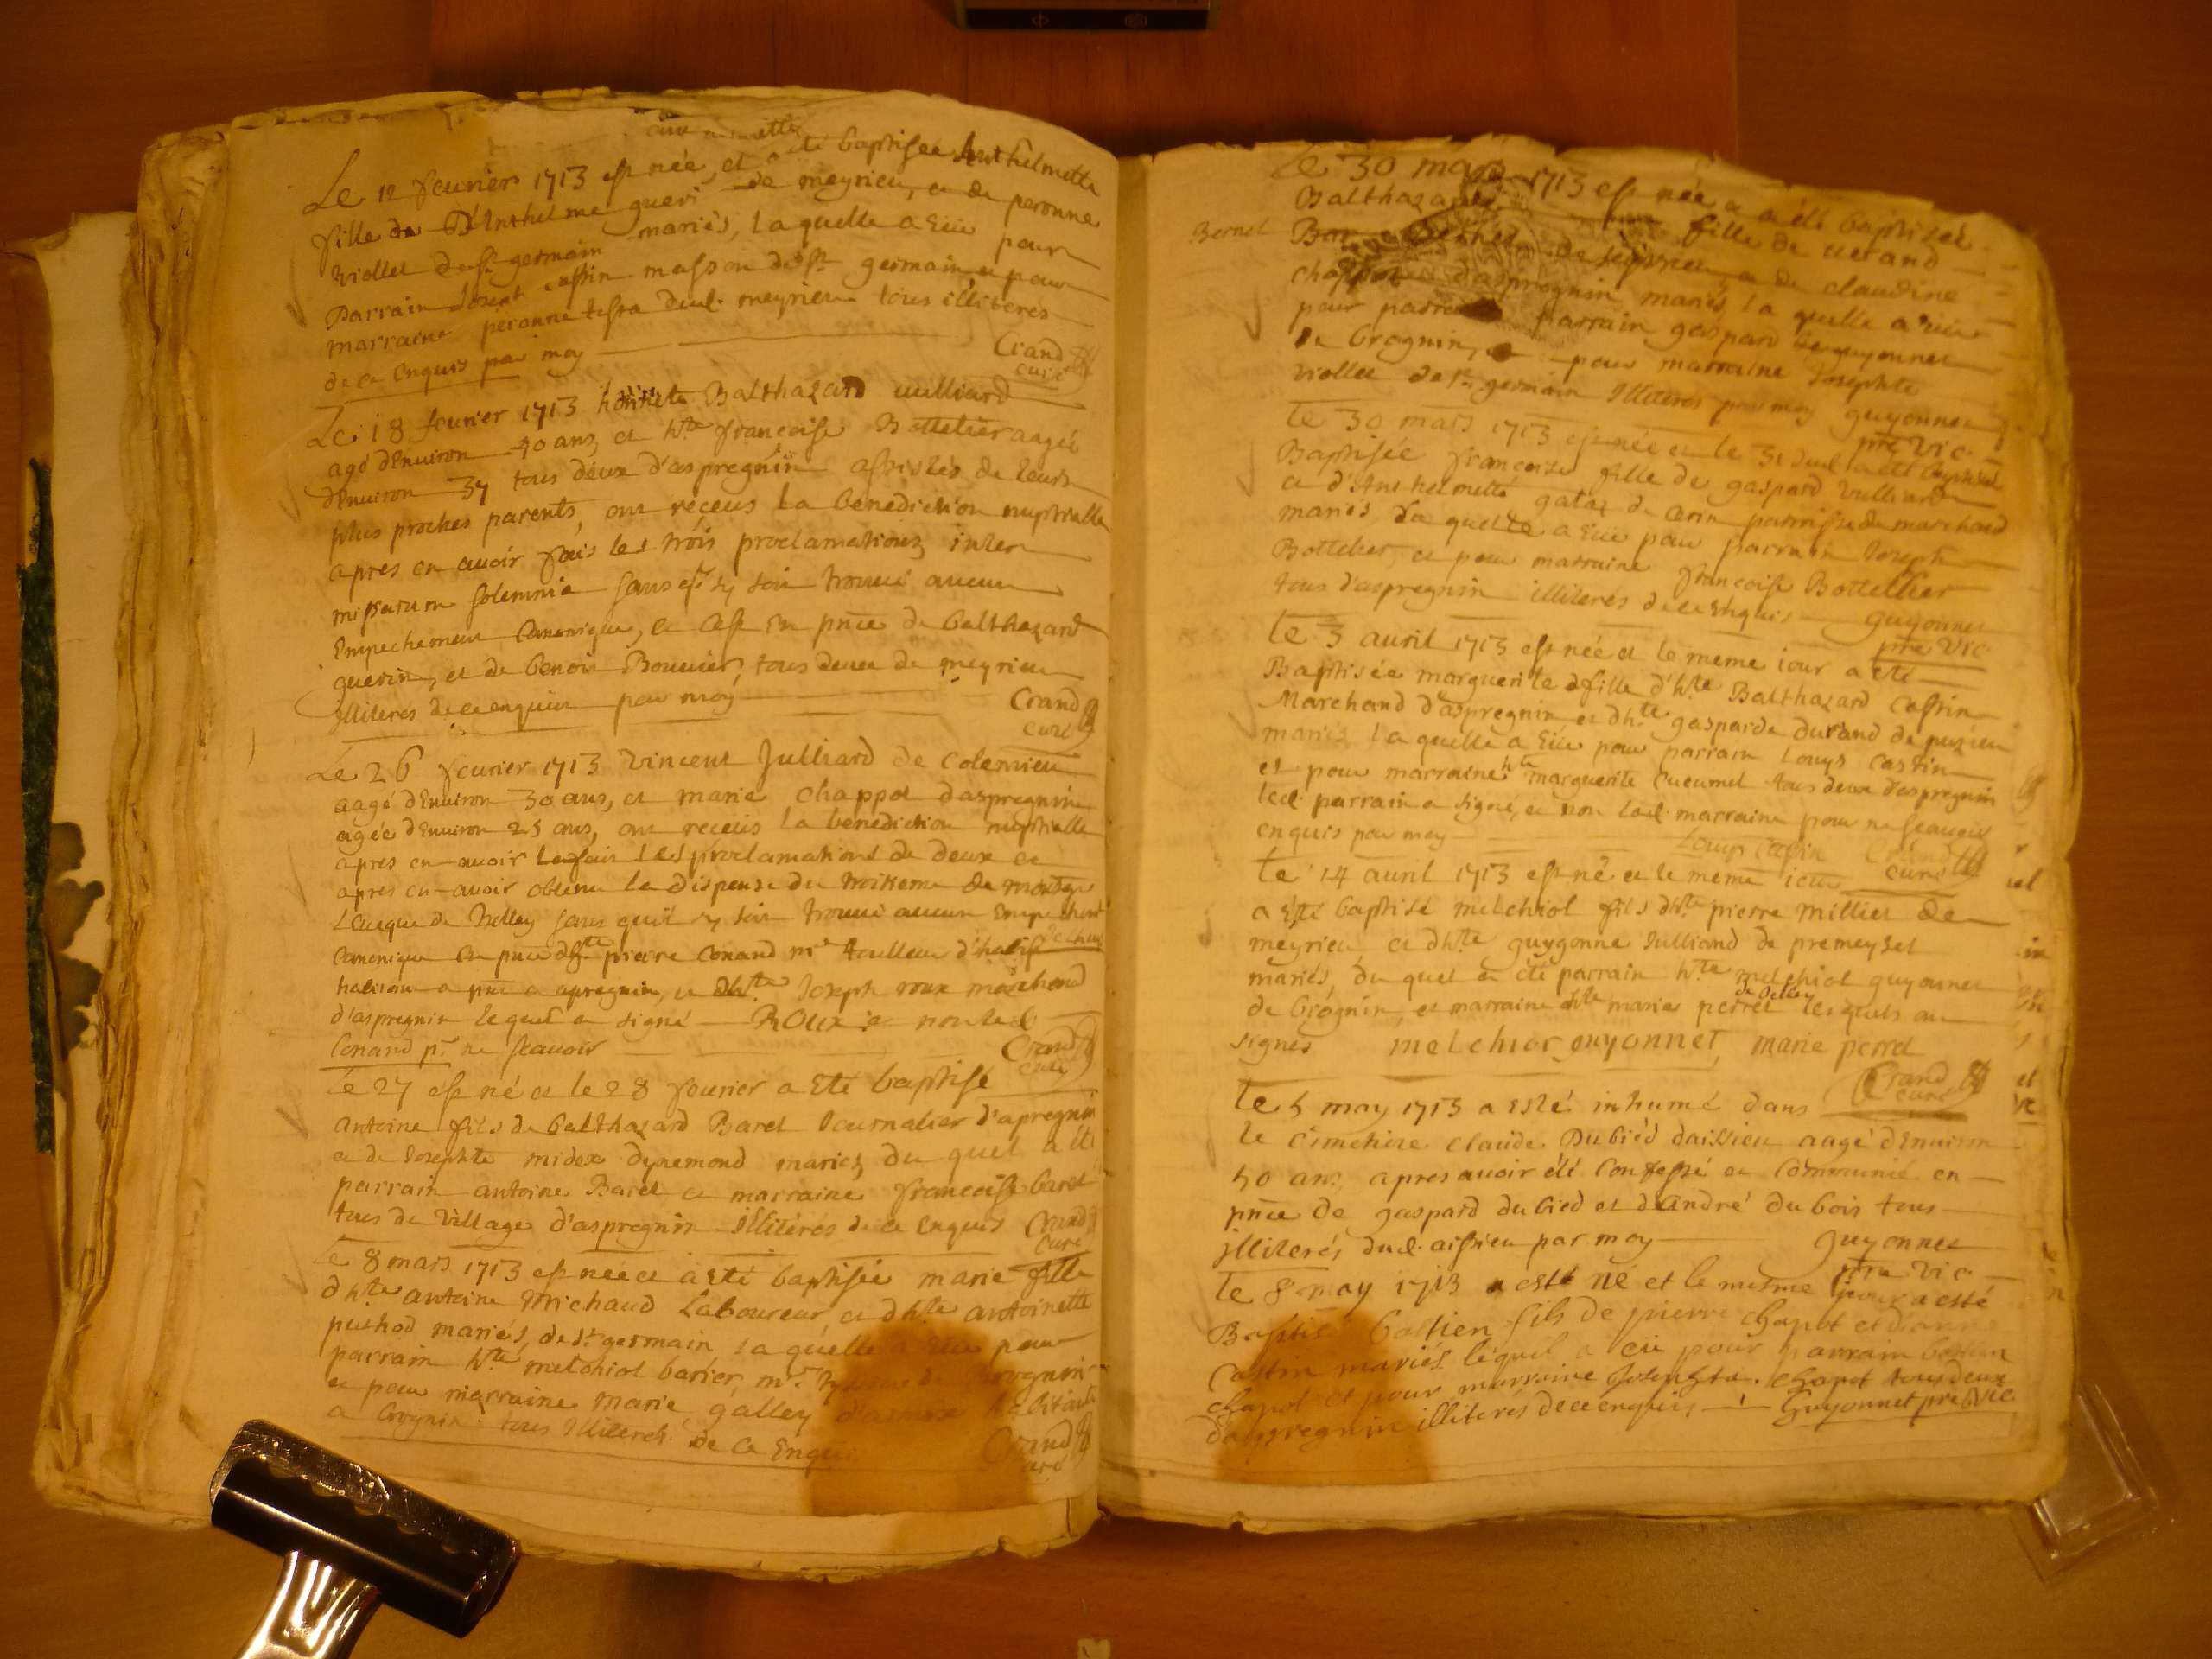 Le 12 feurier 1713 est née, et a eté baptisée Anthelmette
fille de d'Anthelme gueri de meyrieu, et de peronne
viollet de st germain mariés, laquelle a eüe pour
parrain Joseph cassin masson de st germain et pour
marraine peronne testra dud. meyrieu tous illiteres
de ce enquis par moy
Crand
curé
Le 18 feurier 1713 honnete Balthazard uulliard
agé d'Enuiron 40 ans, et h.te francoise Bottelier aagée
d'Enuiron 37 tous deux d'aspregnin assistés de leurs
plus proches parents, ont receus la benediction nuptialle
apres en auoir fais les trois proclamations, inter
missarum solemnia sans qu'il y soit trouué aucun
Empechement Canonique, et cest en pnce de balthazard
guerin, et de benoit Bouuier, tous deux de meyrieu
Illiteres de ce enquis par moy
Crand
curé
Le 26 feurier 1713 vincent Julliard de Colemieu
aagé d'Enuiron 30 ans, et marie chappot d'aspregnin
agée d'Enuiron 25 ans, ont receus la benediction nuptialle
apres en auoir fais les proclamations de deux et
apres en auoir obtenu la dispense du troisieme de monsgr
L'eueque de Belley sans quil y soit trouué aucun Empechemt
Canonique en pnce d'h.te pierre Conand m.e tailleur d'habis
habitant a pnt a apregnin, et d'h.te Joseph roux marchand
d'aspregnin lequel a signé Roux et non led.
Conand pr ne scauoir
Crand
curé
Le 27 est né et le 28 feurier a Eté baptisé
antoine fils de balthazard Baret Journalier d'apregnin
et de Josephte midex dyremond mariez, du quel a été
parrain antoine Baret et marraine francoise baret
tous du village d'aspregnin Illiterés de ce Enquis
Crand
curé
Le 8 mars 1713 est née et a eté baptisée marie fille
d'h.te antoine Michaud Laboureur, et d'h.te antoinette
puthod mariés, de st germain, la quelle a eüe pour
parrain h.te melchiol barier, m.e
et pour marraine marie galley habitante
a Crognin tous Illiteres de Ce Enquis
Crand
curé
Le 30 mars 1713 est née et a été baptisée
Balthazarde fille de uerand
Bernet
de et de claudine
chappot d'aspregnin mariés, la quelle a eüe
pour parrain gaspard guyonnet
de Crognin, et pour marraine Josephte
viollet de st germain Illiteres par moy guyonnet
pre vic.
Le 30 mars 1713 est née et le 31 dud. a eté baptisée
Baptisée francoise fille de gaspard Vulliard
et d'Anthelmette gataz de cerin parroisse de marchand
mariés, la quelle a Eüe pour parrain Joseph
Bottelier, et pour marraine francoise Bottellier
tous d'aspregnin illiterés de ce Enquis guyonnet
pre vic.
Le 3 auril 1713 est née et le meme iour a eté
Baptisée marguerite fille d'h.te Balthazard Cassin
Marchand d'aspregnin et d'h.te gasparde durand de puzieu
mariés, laquelle a Eüe pour parrain Louys Castin
et pour marraine h.te marguerite Cueumel tous deux d'aspregnin
led. parrain a signé, et non lad. marraine pour ne scauoir
enquis par moy
Louys Casin Crand
curé
Le 14 auril 1713 est né et le meme iour
a Eté baptisé melchiol fils d'h.te pierre Millier de
meyrieu et d'h.te guygonne Julliand de premeyset
mariés, du quel a été parrain h.te melchiol guyonnet
de Crognin, et marraine h.te marie perret de Belley lesquels ont
signés melchior guyonnet, marie perret
Crand
curé
Le 5 may 1713 a Esté inhumé dans
le cimetiere claude Dubiéd daissieu aagé d'Enuiron
50 ans, apres auoir été confessé et communié en
pnce de gaspard dubied et d'André du bois tous
illiterés, dud. aissieu par moy guyonnet
pre vic.
Le 8 may 1713 a esté né et le mesme jour a esté
Baptisé bastien fils de pierre chapot et d'anne
Castin mariés lequel a eü pour parrain bastien
chapot et pour marraine Josephte chapot tous deux
d'aspregnin illiterés de ce enquis Guyonnet pre vic.